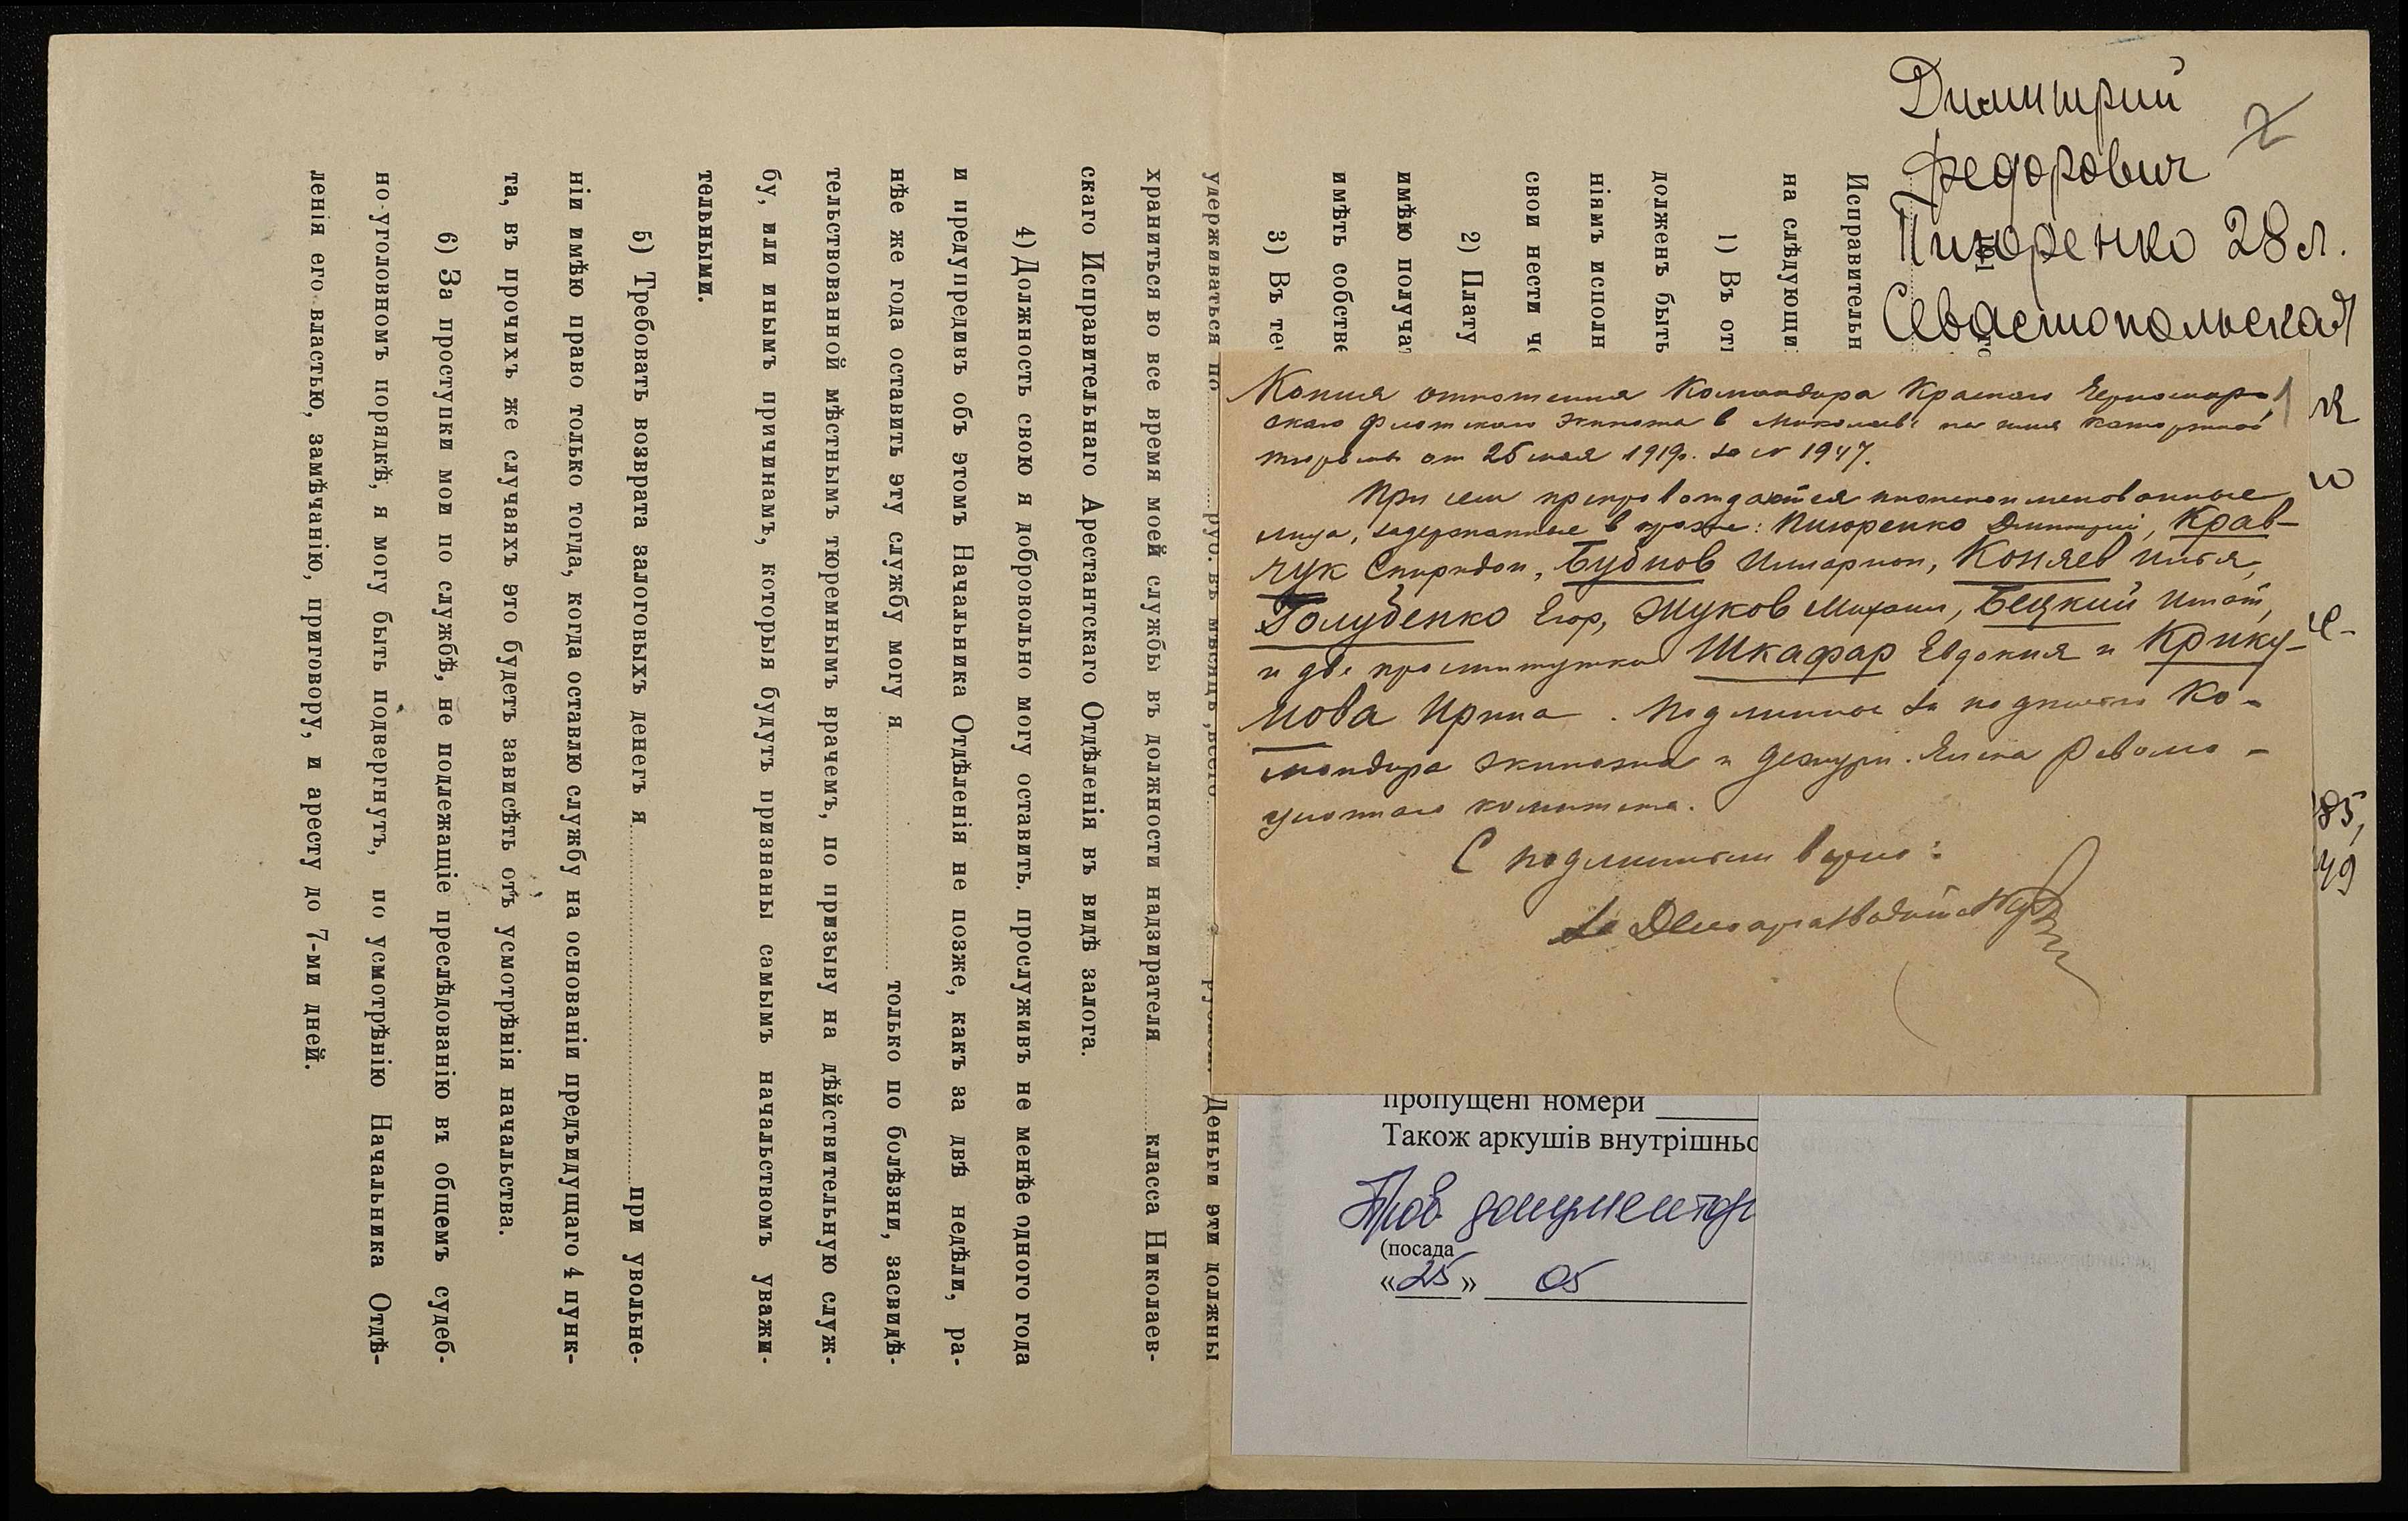 Димитрий
Федорович
Пиюренко 28 л.
Севастопольская
2
Исправительн
на слѣдующи
1) Въ от
долженъ быть
ніямъ исполн
свои нести че
2) Плату
имѣю получат
имѣть собстве
3) Въ те
удерживаться по руб. въ мѣсяцъ, всего Деньги эти должны
храниться во все время моей службы въ должности надзирателя класса Николаев-
скаго Исправительнаго Арестантскаго Отдѣленія въ видѣ залога.
4) Должность свою я добровольно могу оставить, прослуживъ не менѣе одного года
и предупредивъ объ этомъ Начальника Отдѣленія не позже, какъ за двѣ недѣли, ра-
нѣе же года оставить эту службу могу я только по болѣзни, засвидѣ-
тельствованной мѣстнымъ тюремнымъ врачемъ, по призыву на дѣйствительную служ-
бу, или инымъ причинамъ, которыя будутъ признаны самымъ начальствомъ уважи-
тельными.
5) Требовать возврата залоговыхъ денегъ я при увольне-
ніи имѣю право только тогда, когда оставлю службу на основаніи предъидущаго 4 пунк-
та, въ прочихъ же случаяхъ это будетъ зависѣть отъ усмотрѣнія начальства.
6) За проступки мои по службѣ, не подлежащіе преслѣдованію въ общемъ судеб-
но-уголовномъ порядкѣ, я могу быть подвергнутъ, по усмотрѣнію Начальника Отдѣ-
ленія его властью, замѣчанію, приговору, и аресту до 7-ми дней.
Копия отношения Командира Красного Черномор-
ского флотского Экипажа в Николаеве на имя каторжной
тюрьмы от 26 мая 1919г. за № 1947.
При сем препровождаются нижепоименованные
лица, задержанные в : Пиюренко Димитрий, Крав-
чук Спиридон, Бубнов Илларион, Коняев Илья,
Голубенко Егор, Жуков Михаил, Бецкий Игнат,
и две проститутки Шкафар Евдокия и Крику-
нова Ирина. Подлинное за подписью Ко-
мандира экипажа и дежурн. Члена Револю-
ционного комитета.
С подлинным верно:
За Делопроизводителя
85,
49
пропущені номери
Також аркушів внутрішньо
Пров. документоз
(посада
«25» 05